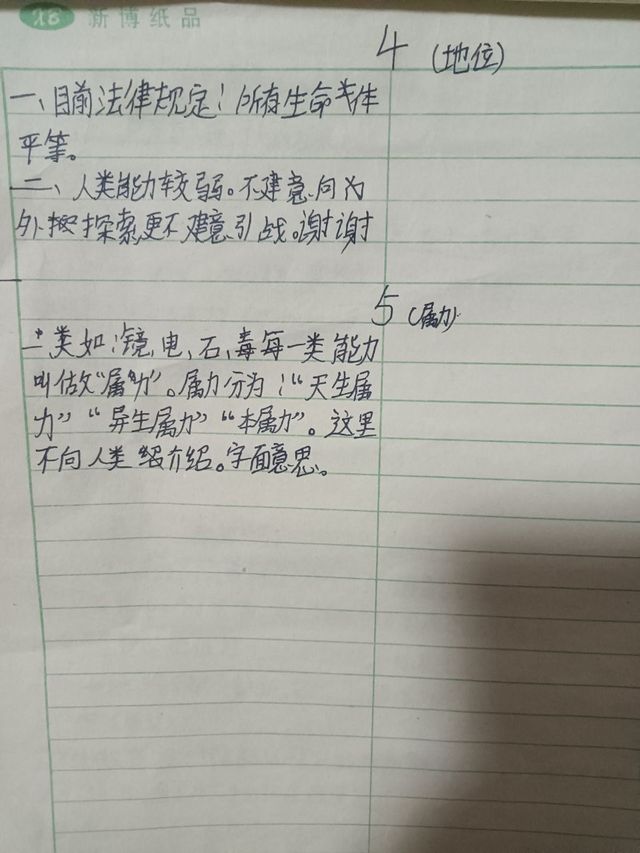 XB 新博纸品
4 (地位)
一、目前法律规定:所有生命气体
平等。
二、人类能力较弱。不建意向
外探索更不建意引战。谢谢
5 (属力)
类如:镜,电,石,毒每一类能力
叫做"属力"。属力分为:"天生属
力""异生属力""本属力"。这里
不向人类介绍。字面意思。